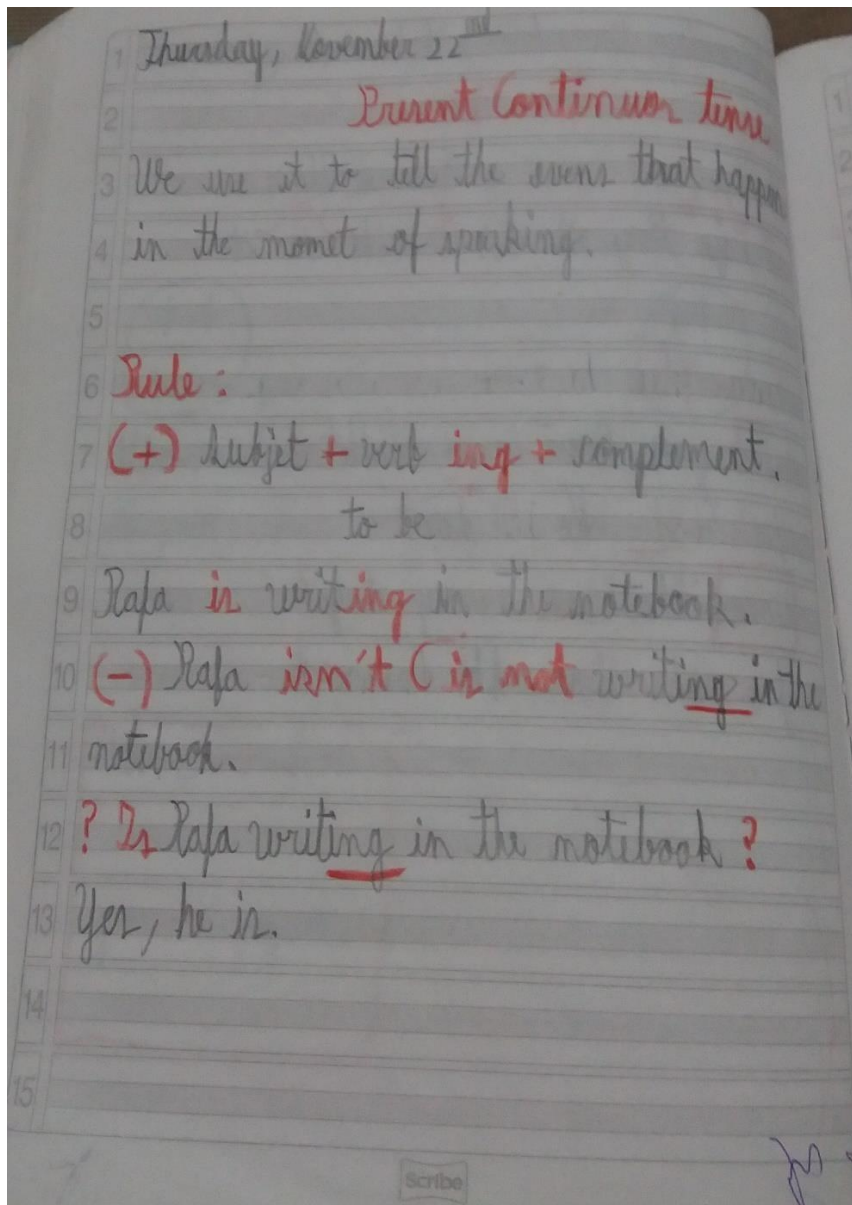 1 Thursday, November 22nd
2 Present Continuos tense
3 We use it to tell the evens that happen
4 in the momet of speaking.
5
6 Rule:
7 (+) Subjet + verb ing + complement.
8 to be
9 Rafa is writing in the notebook.
10 (-) Rafa isn't ( is not writing in the
11 notebook.
12 ? Is Rafa writing in the notebook?
13 Yes, he is.
14
15
Scribe